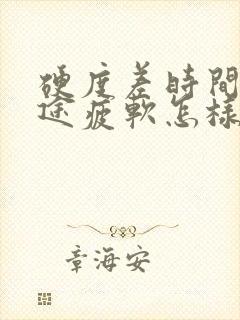 硬度差時間
途疲軟怎樣
章海安